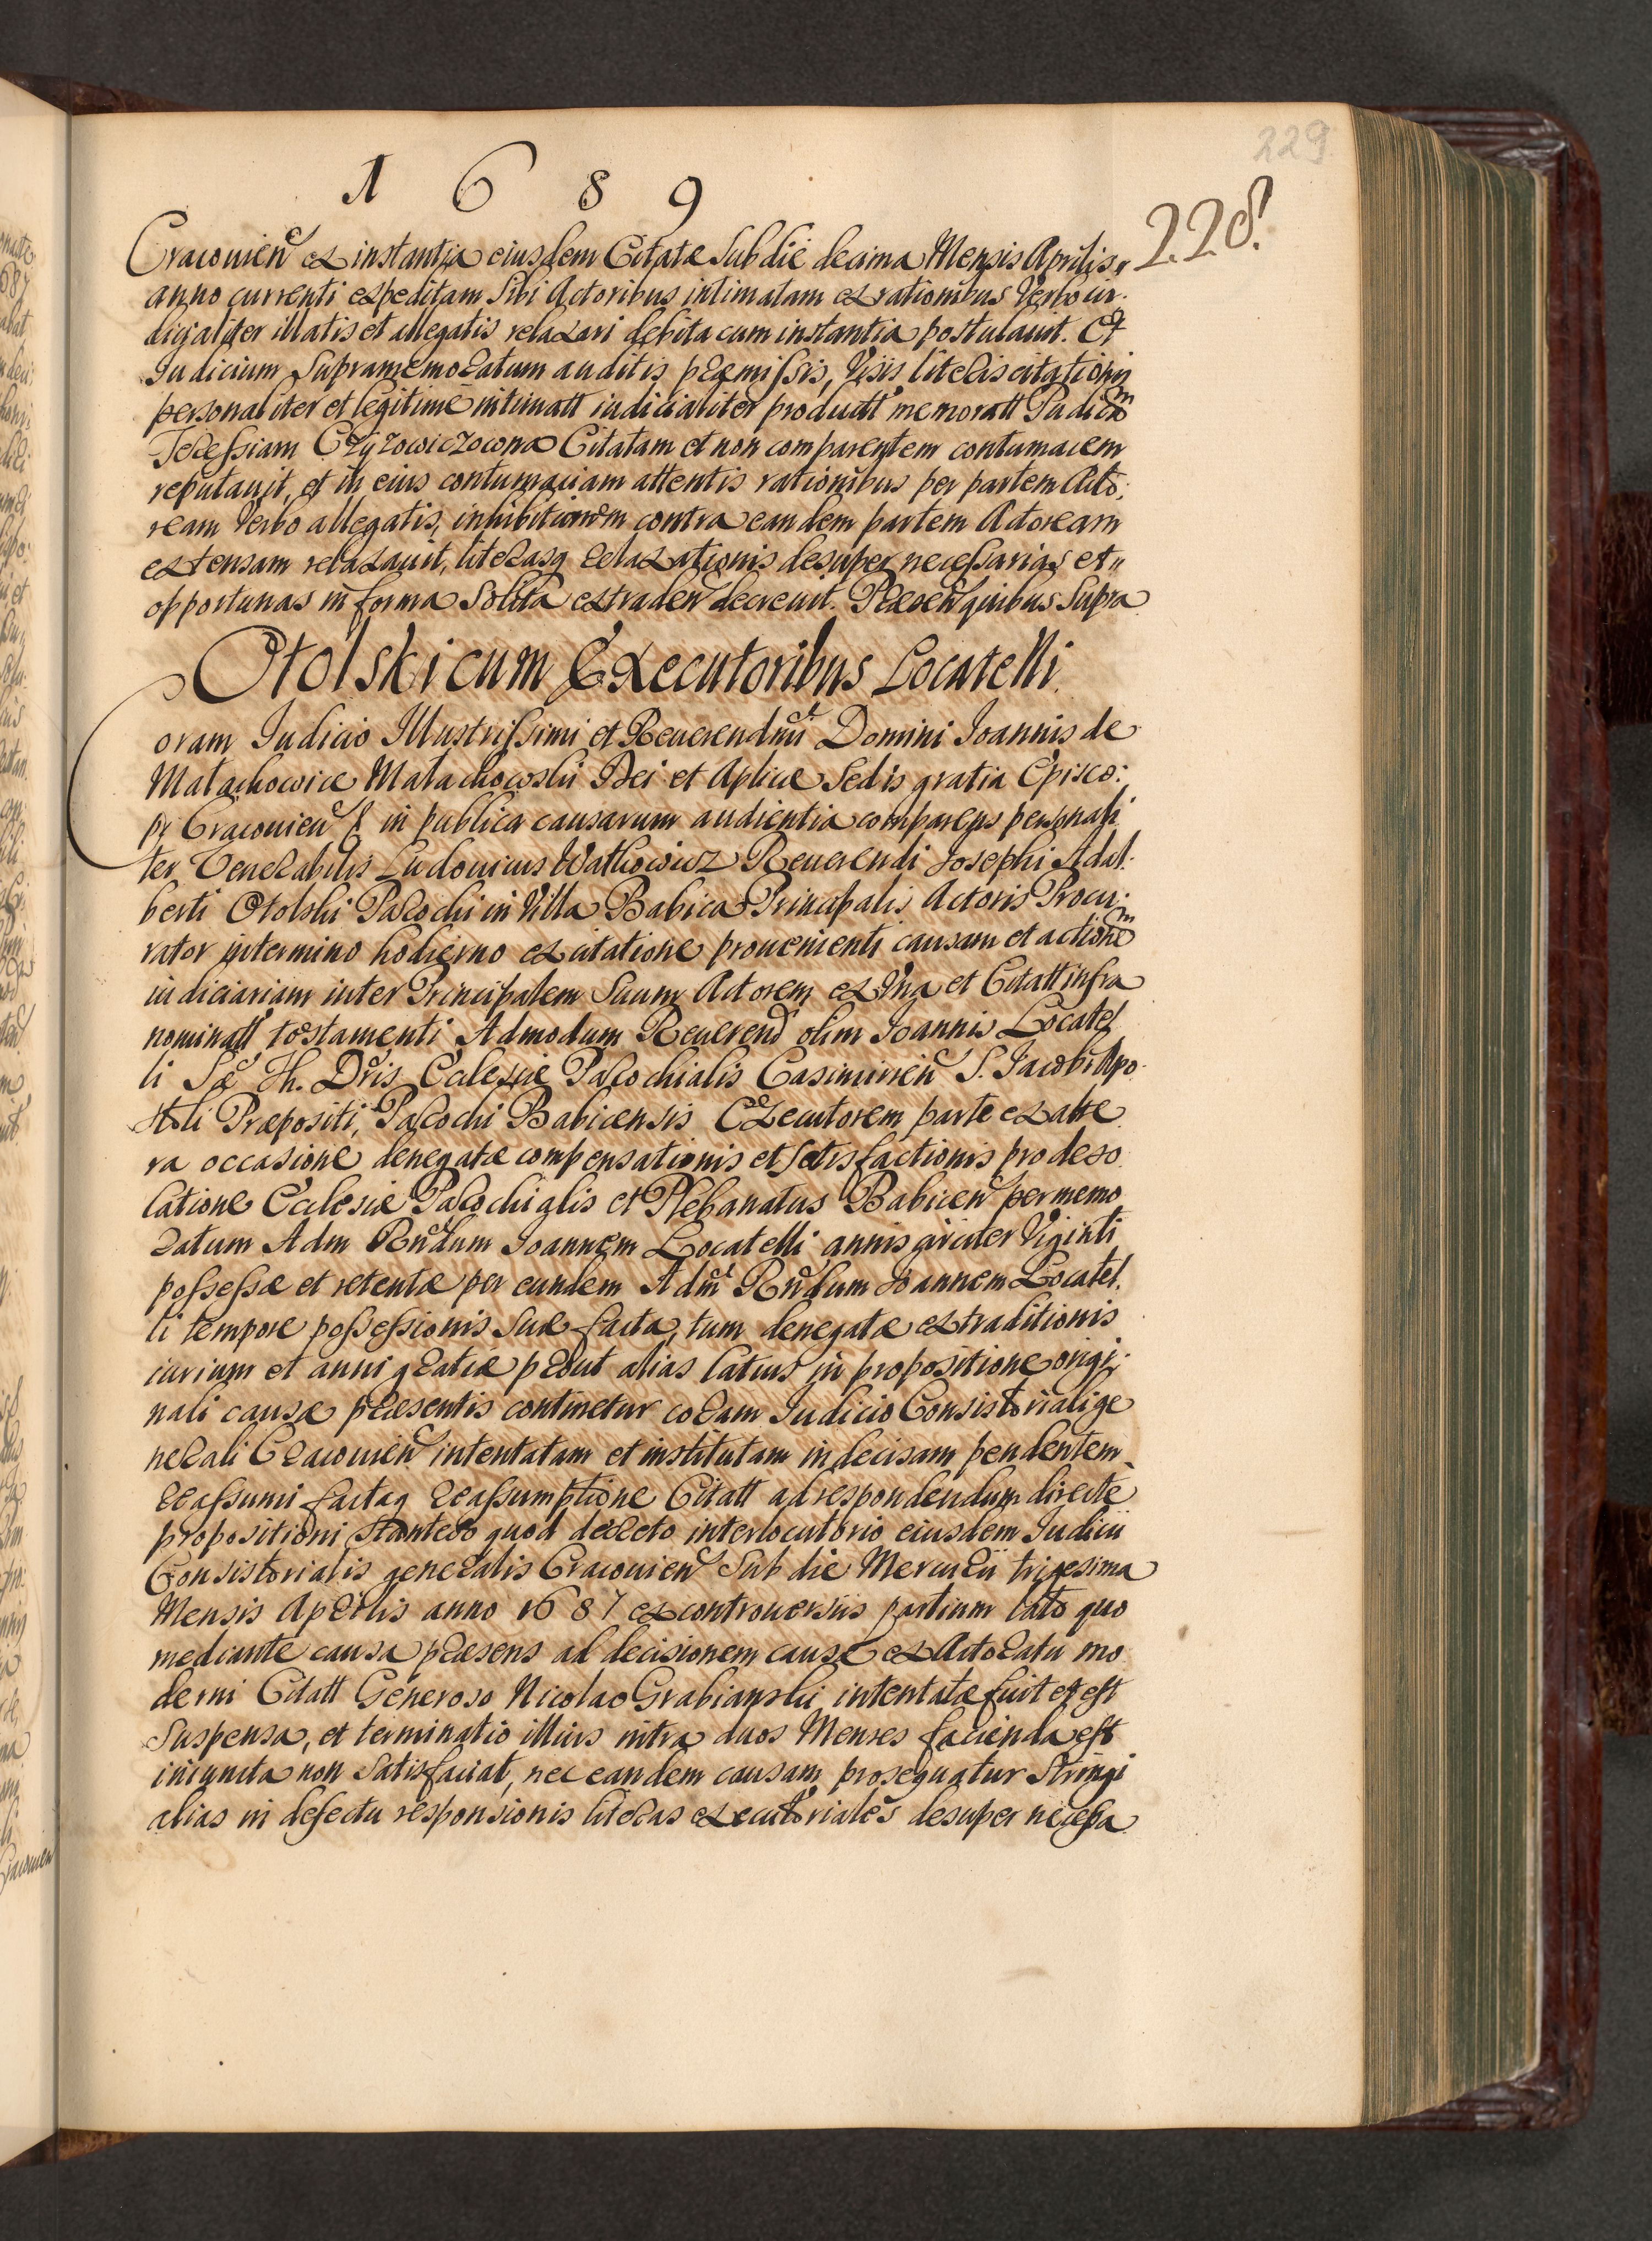 229
1 6 8 9
228.
Cracouien̄ ex instantia eiusdem Citatæ Sub die decima Mensis Aprilis
anno currenti expeditam Sibi Actoribus intimatam ex rationibus Verbo iu-
dicialiter illatis et allegatis relaxari debita cum instantia postulauit. Et
Iudicium Supramemoratum auditis præmissis, Visis literis citationis
personaliter et legitime intimatt iudicialiter productt memoratt Pudicam
Teressiam Czyzowiczowna Citatam et non comparentem contumacem
reputauit, et in eius contumaciam attentis rationibus per partem Acto:
ream Verbo allegatis, inhibitionem contra eandem partem Actoream
extensam relaxauit, literasq relaxationis desuper necessarias et
opportunas in forma Solita extraden̄ decreuit. Præsen̄ quibus Supra
Otolski cum Executoribus Locatelli
Coram Iudicio Illustrissimi et Reuerendmi Domini Ioannis de
Małachowice Małachowski Dei et Aplicæ Sedis gratia Episco:
pi Cracouien̄ & in publica causarum audientia comparens personali
ter Venerabilis Ludouicus Watkowicz Reuerendi Josephi Adal:
berti Otolski Parochi in Villa Babica Principalis Actoris Procu:
rator in termino hodierno ex citatione prouenienti causam et actionem
iudiciariam inter Principalem Suum Actorem ex Vna et Citatt infra
nominatt testamenti Admodum Reuerend olim Ioannis Locatel
li Sæ Th. Dris Ecclesiæ Parochialis Casimirien̄ S. Iacobi Apo
stoli Præpositi, Parochi Babicensis Executorem parte ex alte
ra occasione denegatæ compensationis et Satisfactionis pro deso
latione Ecclesiæ Parochialis et Plebanatus Babicen̄ per memo
ratum Adm Rndum Ioannem Locatelli annis circiter Viginti
possessæ et retentæ per eundem Adm Rndum Ioannem Locatel.
li tempore possessionis Suæ facta, tum denegatæ extraditionis
iurium et anni gratiæ prout alias latius in propositione origi:
nali causæ præsentis continetur coram Iudicio Consistoriali ge
nerali Cracouien̄ intentatam et institutam indecisam pendentem
reassumi factaq reassumptione Citatt ad respondendum directe
propositioni stanteso quod decreto interlocutorio eiusdem Iudicii
Consistorialis generalis Cracouien̄ Sub die Mercurii trigesima
Mensis Aprilis anno 1687 ex controuersiis partium lato quo
mediante causa præsens ad decisionem causæ ex Actoratu mo
derni Citatt Generoso Nicolao Grabianski intentatæ fuit et est
Suspensa, et terminatio illius intra duos Menses facienda est
iniuncta non Satisfaciat, nec eandem causam prosequatur Stringi
alias in defectu responsionis literas executoriales desuper necessa